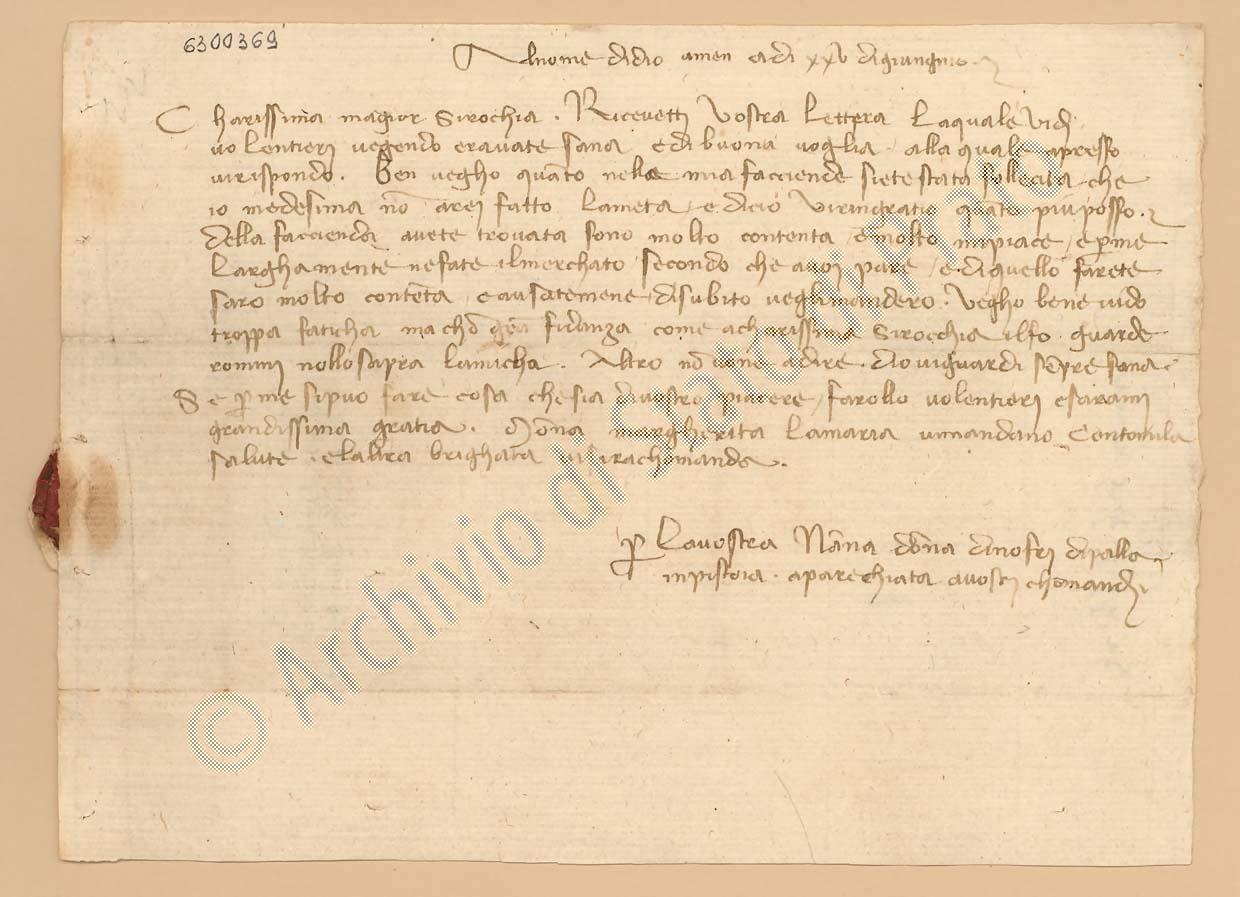 6300369
Al nome didio amen adi xxv digiungnio.
Charissima magior Sirochia. Ricevetti Vostra Lettera Laquale vidi
volentieri vegendo eravate sana edibuona voglia. allaquale apresso
virispondo. Ben vegho quãto nella mia facciende sietestata sollecita che
io medesima nõ arei fatto lameta, e dicio Viringratio quãto piu posso.
della faccienda avete trovata sono molto contenta, e molto mipiace, e p̲me
Larghamente nefate ilmerchato, secondo che avoi pare, e diquello farete
saro molto contẽta, e avisatemene, disubito veglimandero. Vegho bene vido
troppa faticha ma chõ grã fidanza come acharissima Sirocchia ilfo. guarde
rommi nollosapra lamicha. Altro nõ vone adire. dio viguardi sẽpre sana.
Se p̲ me sipuo fare cosa chesia divostro piacere, farollo volentieri e sarami
grandissima gratia. Mõna margherita Lamaria vimandano Centomila
salute. elaltra brighata visirachomanda.
p̲ Lavostra Nãna dõna dinofri dipalla
inpistoia. aparechiata avostri chomandi.
© Archivio di Stato di Prato